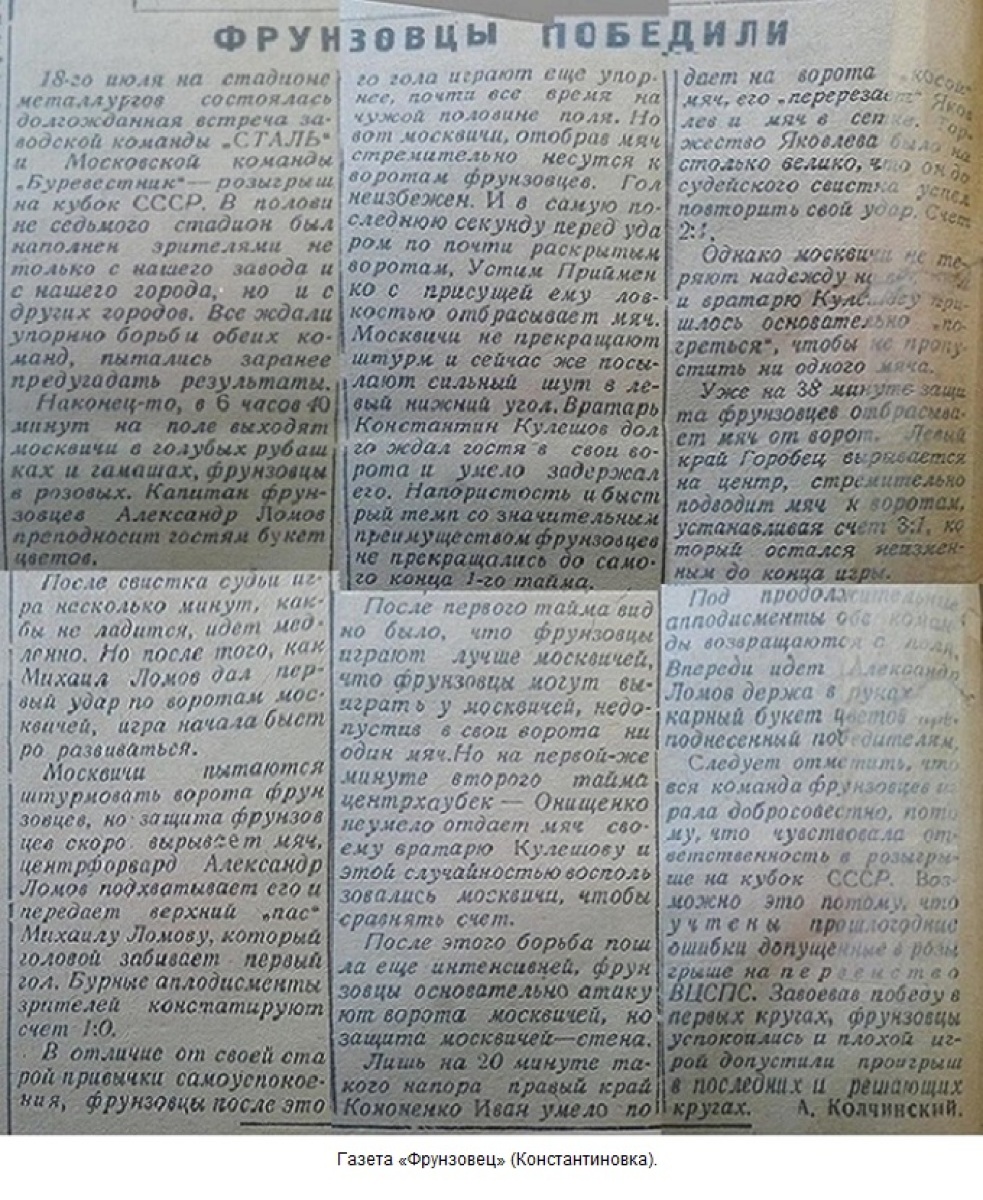 ФРУНЗОВЦЫ ПОБЕДИЛИ
18-го июля на стадионе
металлургов состоялась
долгожданная встреча за-
водской команды „СТАЛЬ“
и Московской команды
„Буревестник“— розыгрыш
на кубок СССР. В полови
не седьмого стадион был
наполнен зрителями не
только с нашего завода и
с нашего города, но и с
других городов. Все ждали
упорной борьбы обеих ко-
манд, пытались заранее
предугадать результаты.
Наконец-то, в 6 часов 40
минут на поле выходят
москвичи в голубых рубаш
ках и гамашах, фрунзовцы
в розовых. Капитан фрун-
зовцев Александр Ломов
преподносит гостям букет
цветов.
После свистка судьи иг-
ра несколько минут, как-
бы не ладится, идет мед-
ленно. Но после того, как
Михаил Ломов дал пер-
вый удар по воротам мос-
квичей, игра начала быст
ро развиваться.
Москвичи пытаются
штурмовать ворота фрун
зовцев, но защита фрунзов
цев скоро вырывает мяч,
центрфорвард Александр
Ломов подхватывает его и
передает верхний „пас“
Михаилу Ломову, который
головой забивает первый
гол. Бурные аплодисменты
зрителей констатируют
счет 1:0.
В отличие от своей ста
рой привычки самоуспокое-
ния, фрунзовцы после это
го гола играют еще упор-
нее, почти все время на
чужой половине поля. Но
вот москвичи, отобрав мяч
стремительно несутся к
воротам фрунзовцев. Гол
неизбежен. И в самую по-
следнюю секунду перед уда
ром по почти раскрытым
воротам, Устим Приймен
ко с присущей ему лов-
костью отбрасывает мяч.
Москвичи не прекращают
штурм и сейчас же посы-
лают сильный шут в ле-
вый нижний угол. Вратарь
Константин Кулешов дол
го ждал гостя в свои во-
рота и умело задержал
его. Напористость и быст
рый темп со значительным
преимуществом фрунзовцев
не прекращались до само-
го конца 1-го тайма.
После первого тайма вид
но было, что фрунзовцы
играют лучше москвичей,
что фрунзовцы могут вы-
играть у москвичей, недо-
пустив в свои ворота ни
один мяч. Но на первой-же
минуте второго тайма
центрхаубек — Онищенко
неумело отдает мяч сво-
ему вратарю Кулешову и
этой случайностью восполь
зовались москвичи, чтобы
сравнять счет.
После этого борьба пош
ла еще интенсивней, фрун
зовцы основательно атаку
ют ворота москвичей, но
защита москвичей—стена.
Лишь на 20 минуте та-
кого напора правый край
Кононенко Иван умело по
дает на ворота „косой“
мяч, его „перерезает“ Яков
лев и мяч в сетке. Тор-
жество Яковлева было на
столько велико, что он до
судейского свистка успел
повторить свой удар. Счет
2:1.
Однако москвичи не те-
ряют надежду на
и вратарю Кулешову при-
шлось основательно „по-
греться“, чтобы не пропу-
стить ни одного мяча.
Уже на 38 минуте защи
та фрунзовцев отбрасыва-
ет мяч от ворот. Левый
край Горобец вырывается
на центр, стремительно
подводит мяч к воротам,
устанавливая счет 3:1, ко
торый остался неизмен-
ным до конца игры.
Под продолжительные
апподисменты обе коман-
ды возвращаются с поля.
Впереди идет Александр
Ломов держа в руках
карный букет цветов пре-
поднесенный победителям.
Следует отметить, что
вся команда фрунзовцев иг-
рала добросовестно, пото
му, что чувствовала от-
ветственность в розыгры-
ше на кубок СССР. Воз-
можно это потому, что
учтены прошлогодние
ошибки допущенные в розы
грыше на первенство
ВЦСПС. Завоевав победу в
первых кругах, фрунзовцы
успокоились и плохой иг-
рой допустили проигрыш
в последних и решающих
кругах. А. Колчинский.
Газета «Фрунзовец» (Константиновка).